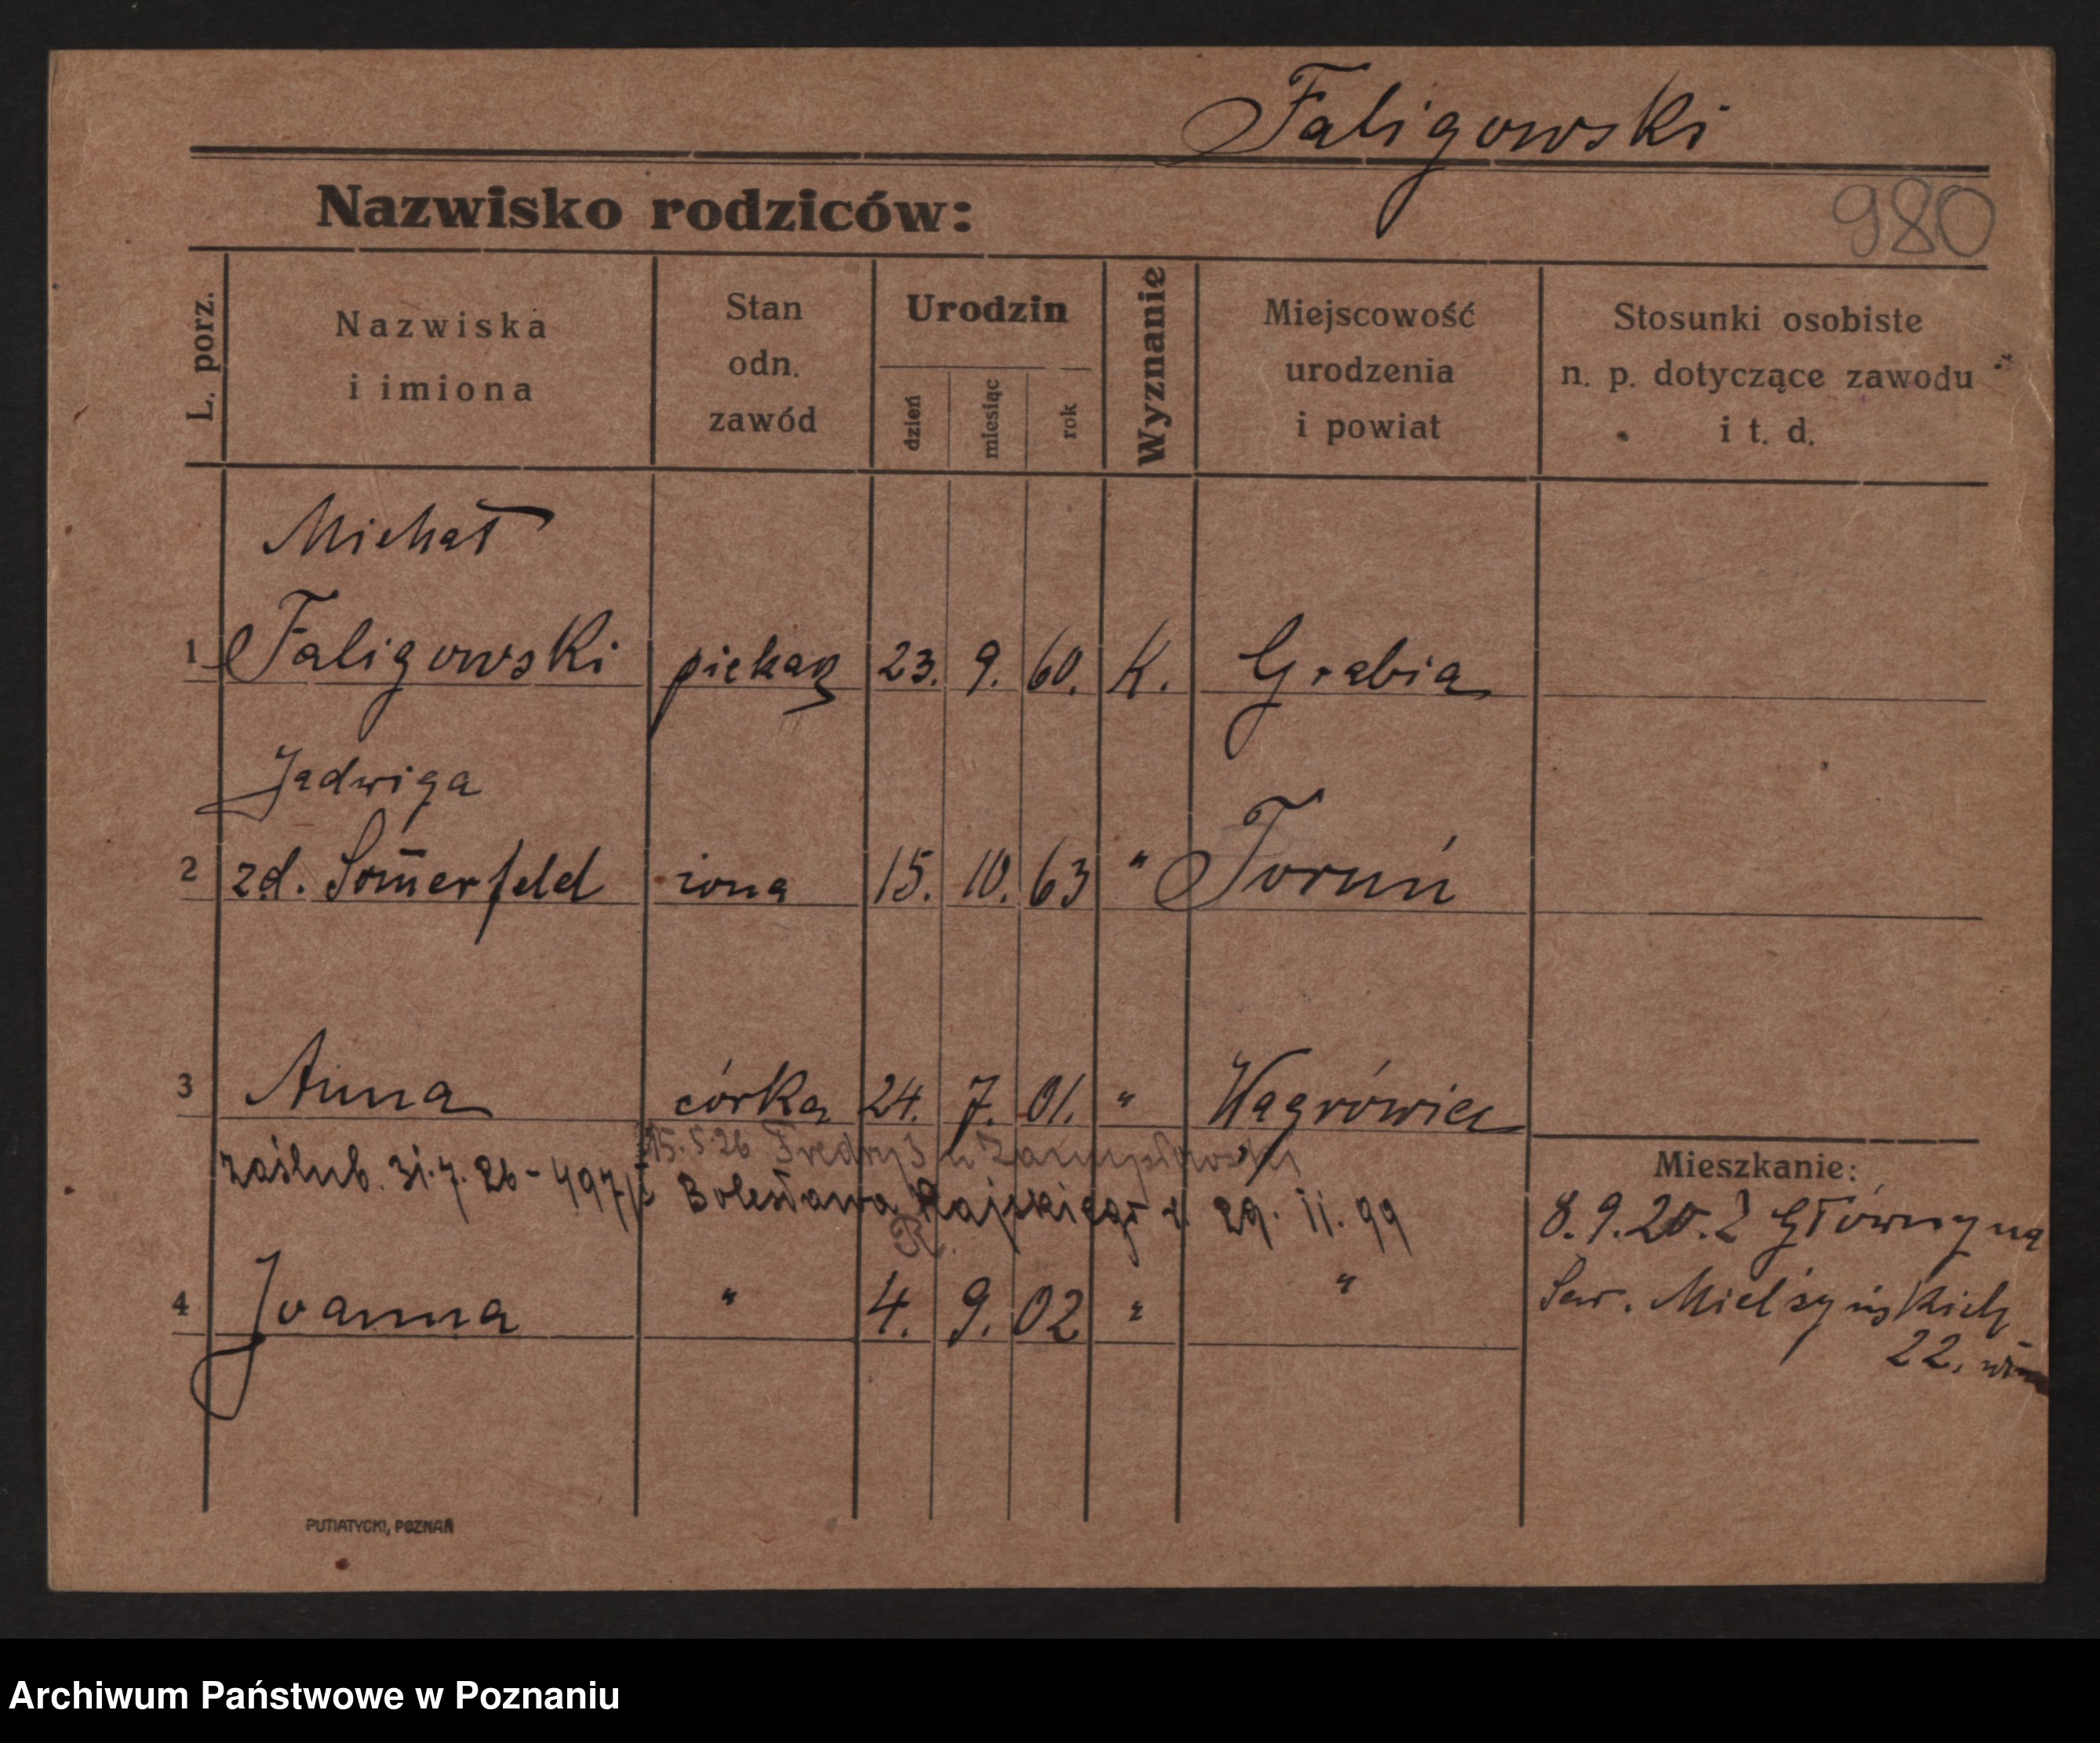 Faligowski
Nazwisko rodziców:
980
L. porz.
Nazwiska
i imiona
Stan
odn.
zawód
Urodzin
dzień
miesiąc
rok
Wyznanie
Miejscowość
urodzenia
i powiat
Stosunki osobiste
n. p. dotyczące zawodu
i t. d.
Michał
1 Faligowski piekarz 23. 9. 60. K. Grabia
Jadwiga
2 zd. Som̄erfeld żona 15. 10. 63 " Toruń
3 Anna córka 24. 7. 01. " Wągrówiec
15.5.26 Fredry 3
zaślub. 31.7.26 - 497/ Bolesława Rajskiego 29.11.99
R.
4 Joanna " 4. 9. 02 " "
Mieszkanie:
8.9.20. Z Główny na
Sew. Mielżyńskich
22.
PUTIATYCKI, POZNAŃ
Archiwum Państwowe w Poznaniu